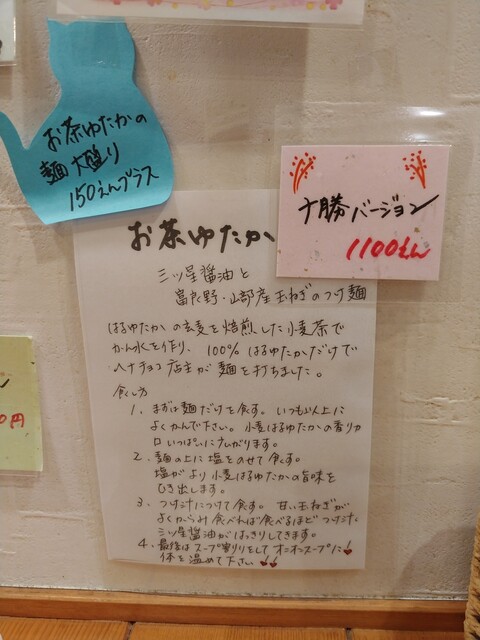 お茶ゆたかの
麺大盛り
150えんプラス
十勝バージョン
1100えん
お茶ゆたか
三ツ星醤油と
富良野・山部産玉ねぎのつけ麺
はるゆたかの玄麦を焙煎した小麦茶で
かん水を作り、100%はるゆたかだけで
ヘナチョコ店主が麺を打ちました。
食し方
1、まずは麺だけを食す。いつも以上に
よくかんで下さい。小麦はるゆたかの香りが
口いっぱいにひろがります。
2、麺の上に塩をのせて食す。
塩がより小麦はるゆたかの旨味を
ひき出します。
3、つけ汁につけて食す。甘い玉ねぎが
よくからみ食べれば食べるほどつけ汁に
三ツ星醤油がはっきりしてきます。
4、最後はスープ割りをしてオニオンスープに
体を温めて下さい
0円